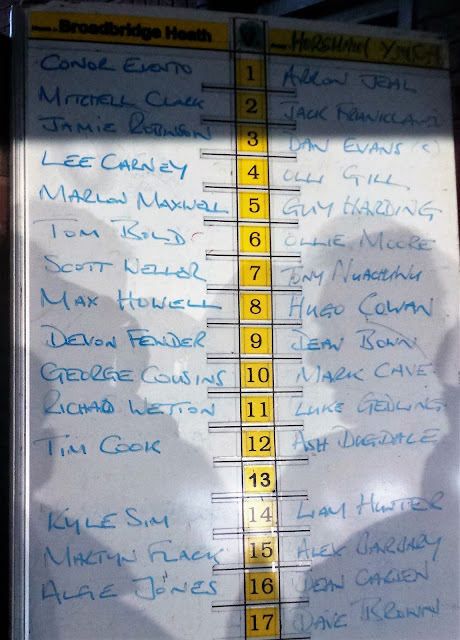 Broadbridge Heath HORSHAM YMCA
CONOR EVENTO 1 ARRON JEHL
MITCHELL CLARK 2 JACK FRANKLAND
JAMIE ROBINSON 3 DAN EVANS (c)
LEE CARNEY 4 OLLI GILL
MARLON MAXWELL 5 GUY HARDING
TOM BOLD 6 OLLIE MOORE
SCOTT WELLER 7 TONY
MAX HOWELL 8 HUGO COWAN
DEVON FENDER 9 DEAN BOWN
GEORGE COUSINS 10 MARK CAVE
RICHARD WETTON 11 LUKE GEDLING
TIM COOK 12 ASH DUGDALE
13
KYLE SIM 14 LIAM HUNTER
MARTYN FLACK 15 ALEX BARBARY
ALFIE JONES 16 DEAN CARDEN
17 DAVE BROWN